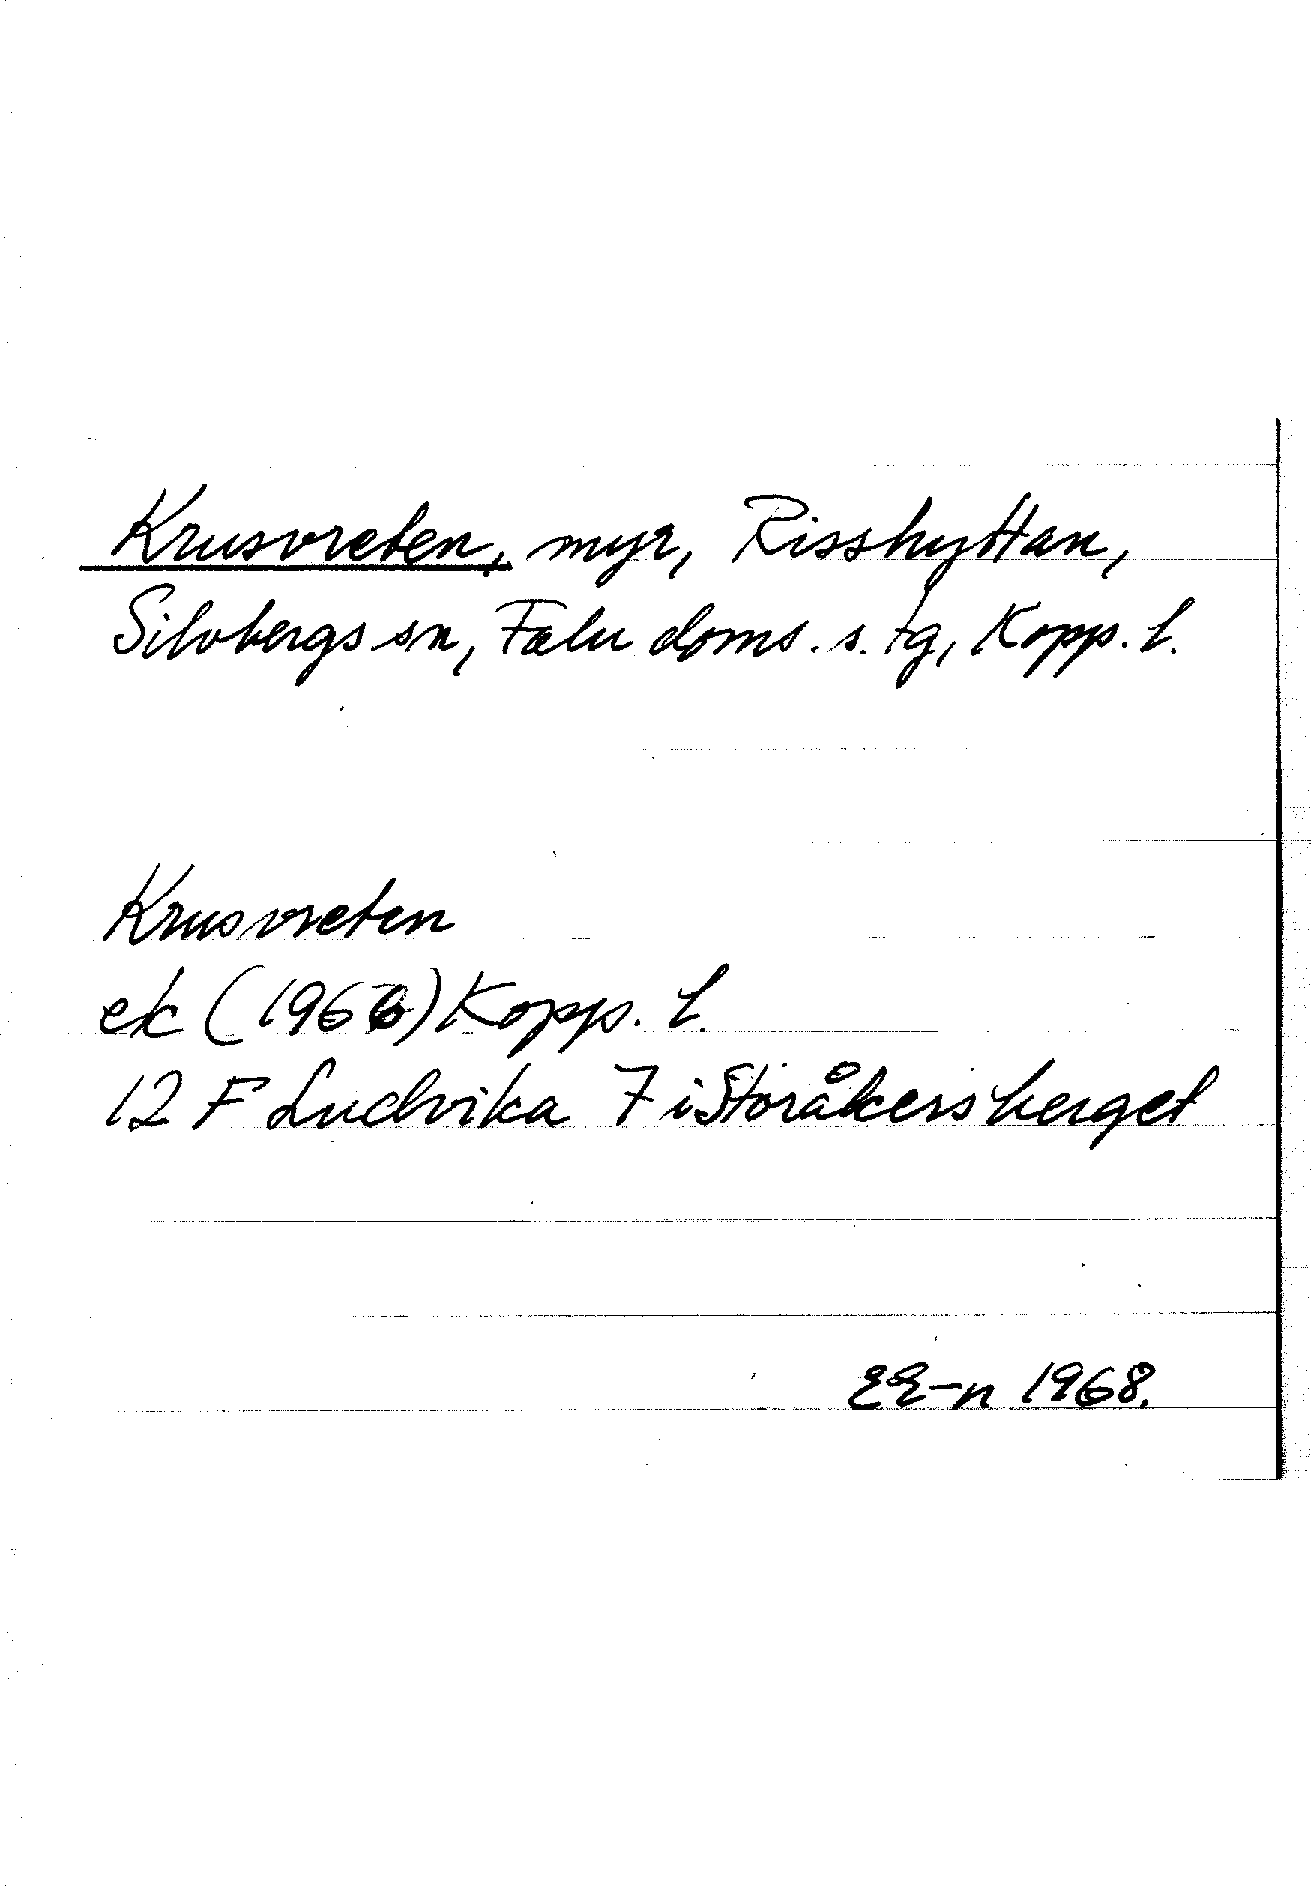 Krusvreten, myr, Risshyttan,
Silvbergs sn, Falu doms. s. tg, Kopp. l.
Krusvreten
ek (1966) Kopp. l.
12 F Ludvika 7 i Storåkersberget
EE-n 1968.